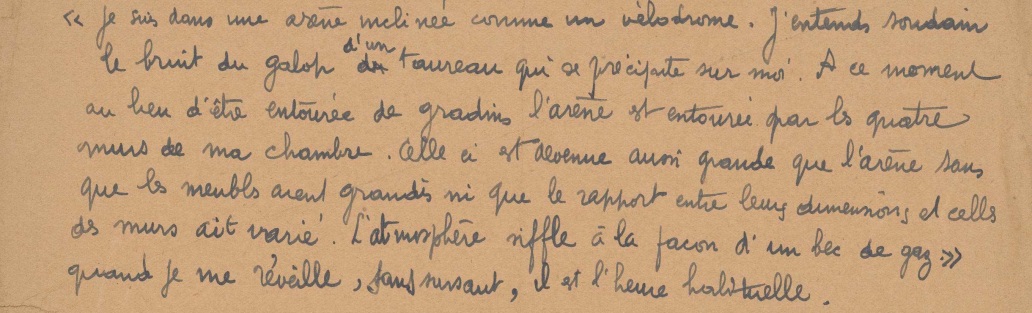 « Je suis dans une arène inclinée comme un vélodrome. J'entends soudain
le bruit du galop d'un taureau qui se précipite sur moi. A ce moment
au lieu d'être entourée de gradins l'arène est entourée par les quatre
murs de ma chambre. Celle ci est devenue aussi grande que l'arène sans
que les meubles aient grandis ni que le rapport entre leurs dimensions et celles
des murs ait varié. L'atmosphère siffle à la facon d'un bec de gaz »
quand je me réveille, sans sursaut, il est l'heure habituelle.